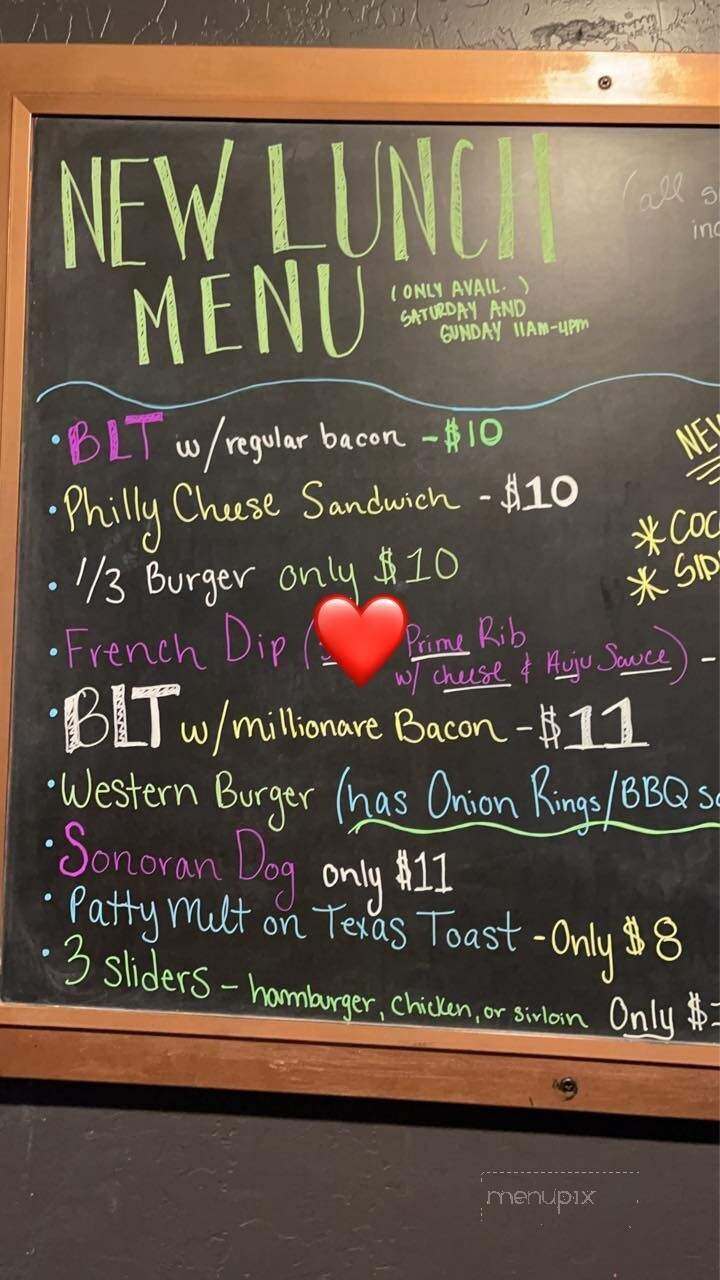 NEW LUNCH
MENU
(ONLY AVAIL. )
SATURDAY AND
SUNDAY 11AM-4PM
(all
• BLT w/regular bacon - $10
• Philly Cheese Sandwich - $10
• 1/3 Burger only $10
• French Dip ( Prime Rib
w/ cheese & Auju Sauce) -
• BLT w/millionare Bacon - $11
• Western Burger (has Onion Rings/BBQ
• Sonoran Dog only $11
• Patty Melt on Texas Toast - Only $8
• 3 sliders - hamburger, chicken, or sirloin Only $
menupix